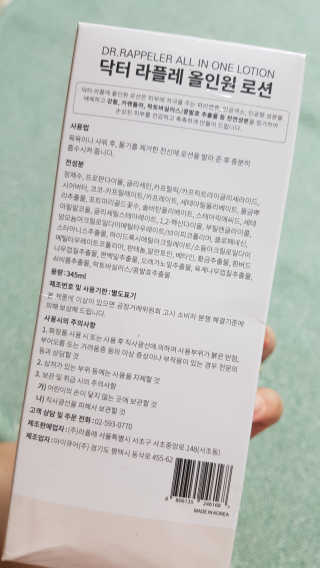 DR.RAPPELER ALL IN ONE LOTION
닥터 라플레 올인원 로션
닥터 라플레 올인원 로션은 피부에 자극을 주는 파라벤류, 인공색소, 인공향 성분을
배제하고 감초, 카렌듈라, 락토바실러스/콩발효 추출물 등 천연성분을 첨가하여
손상된 피부를 건강하고 촉촉하게 만들어 드립니다.
사용법
목욕이나 샤워 후, 물기를 제거한 전신에 로션을 발라 준 후 충분히
흡수시켜 줍니다.
전성분
정제수, 프로판다이올, 글리세린, 카프릴릭/카프릭트라이글리세라이드,
시어버터, 코코-카프릴레이트/카프레이트, 세테아릴올리베이트,
리추출물, 포트마리골드꽃수, 솔비탄올리베이트, 스테아릭애씨드, 세테
아릴알코올, 글리세릴스테아레이트, 1,2-헥산다이올, 부틸렌글라이콜,
용량 : 345ml
제조번호 및 사용기한 : 별도표기
본 제품에 이상이 있으면 공정거래위원회 고시 소비자 분쟁 해결기준에
의해 보상해 드립니다.
사용시의 주의사항
1. 화장품 사용 시 또는 사용 후 직사광선에 의하여 사용부위가 붉은 반점,
부어오름 또는 가려움증 등의 이상 증상이나 부작용이 있는 경우 전문의
등과 상담할 것
2. 상처가 있는 부위 등에는 사용을 자제할 것
3. 보관 및 취급 시의 주의사항
가) 어린이의 손이 닿지 않는 곳에 보관할 것
나) 직사광선을 피해서 보관할 것
고객 상담 및 주문 전화 : 02-593-0770
제조판매업자 : (주)라플레 서울특별시 서초구 서초중앙로 148(서초동)
제조업자 : 아이큐어(주) 경기도 평택시 동삭로 455-62
MADE IN KOREA